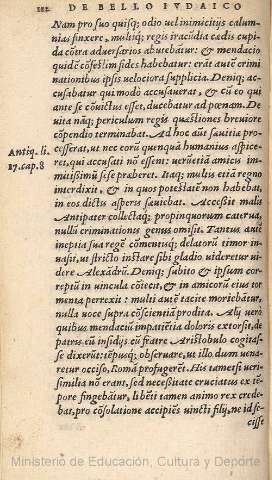 DE BELLO IVDAICO
Nam pro suo quisq; odio vel inimicitijs calum-
nias finxere, multiq; regis iracudia cædis cupi-
da cõtra adversarios abutebãtur: & mendacio
quidẽ cõfestim fides habebatur: erãt autẽ crimi
nationibus ipsis velociora supplicia. Deniq; ac-
cusabatur qui modò accusauerat, & cũ eo qui
ante se cõuictus esset, ducebatur ad pœnam. De
vita nãq; periculum regis quæstiones breviore
cõpendio terminabat. Ad hoc autẽ sævitia pro-
cesserat, ut nec eorũ quenquã humanius aspice-
Antiq. li.
ret, qui accusati nõ essent: verũetiã amicis im-
17. cap. 8
mitissimũ se se præberet. Itaq; multis etiã regno
interdixit, & in quos potestatẽ non habebat,
in eos dictis aspera sæuibat. Accessit malis
Antipater collectaq; propinquorum caterua,
nullũ criminationis genus omisit. Tantus autẽ
ineptia sua regẽ cõmentiuq; delatorũ timor in-
vasit, ut stricto instare sibi gladio videretur vi-
dere Alexãdrũ. Deniq; subito & ipsum cor-
reptũ in vincula cõiecit, & in amicorũ eius tor
menta perrexit: multi autẽ taciti moriebãtur,
nulla voce supra cõscientiã prodita. Alij verò
quibus mendaciũ impatiẽtia doloris extorsit, de
patres cũ insidijs cũ fratre Aristobulo cogitas-
se dixerũt: tẽpusq; observare, ut illo dum vena-
retur occiso, Romã profugerẽt. His tametsi veri-
similia nõ erant, sed necessitate cruciatus ex tẽ-
pore fingebãtur, libẽti tamen animo rex crede-
bat, pro cõsolatione accipiẽs vincti filij, ne id fe-
cisse
Ministerio de Educación, Cultura y Deporte